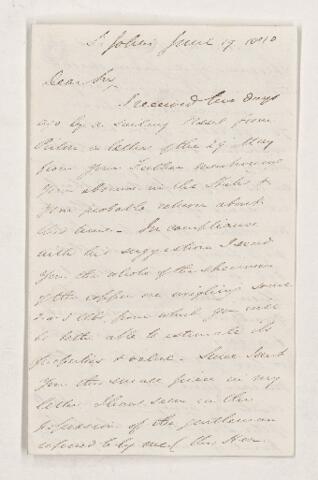 St. Johns June 19. 
Dear Sir,
I received two days
ago by a sailing Vessel from
a letter of the 29 May
from your Father mentioning
your absence in the States &
your probable return about
this time. In compliance
with his suggestion I send
you the whole of the specimen
of the copper ore weighing some
lbs. from which you will
be better able to estimate its
properties & value. Since I sent
you the small piece in my
letter I have seen in the
possession of the gentleman
referred to by me, (the Hon.